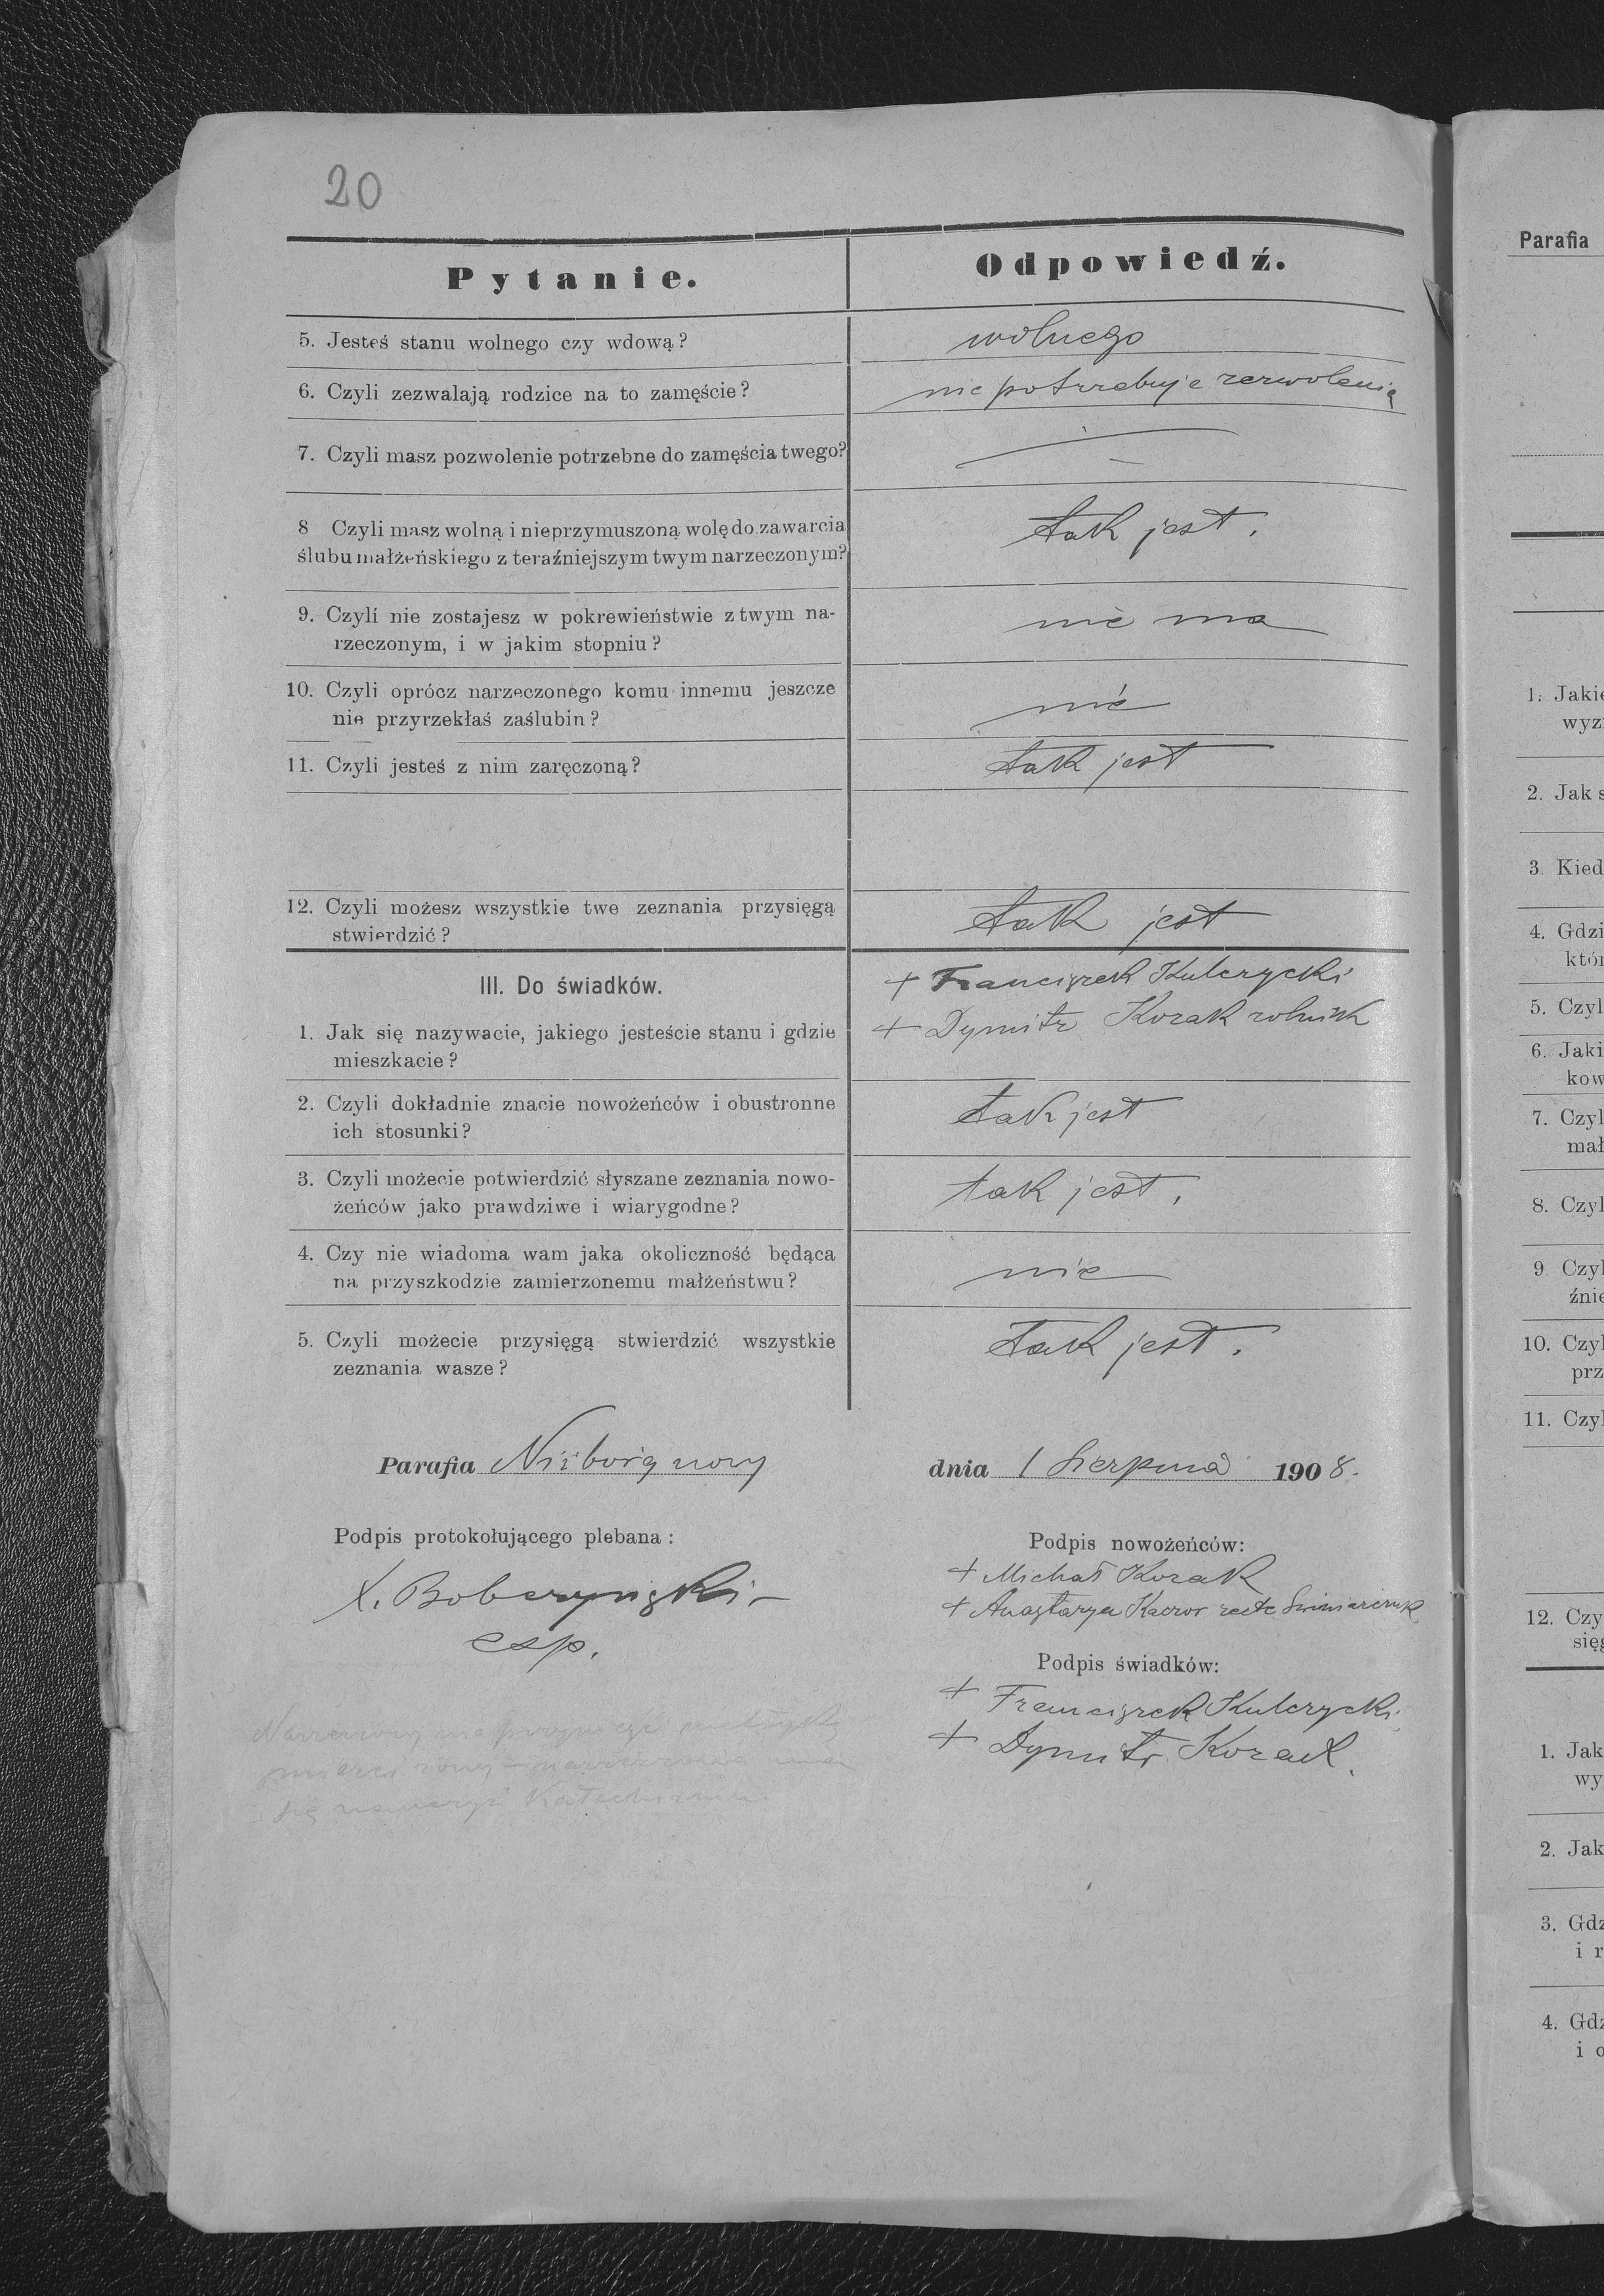 20
Pytanie.
Odpowiedź.
5. Jesteś stanu wolnego czy wdową?
wolnego
6. Czyli zezwalają rodzice na to zamęście?
nie potrzebuje zezwolenia
7. Czyli masz pozwolenie potrzebne do zamęścia twego?
8 Czyli masz wolną i nieprzymuszoną wolę do zawarcia
ślubu małżeńskiego z teraźniejszym twym narzeczonym?
tak jest.
9. Czyli nie zostajesz w pokrewieństwie z twym na-
rzeczonym, i w jakim stopniu?
nie ma
10. Czyli oprócz narzeczonego komu innemu jeszcze
nie przyrzekłaś zaślubin?
nie
11. Czyli jesteś z nim zaręczoną?
tak jest
12. Czyli możesz wszystkie twe zeznania przysięgą
stwierdzić?
tak jest
III. Do świadków.
1. Jak się nazywacie, jakiego jesteście stanu i gdzie
mieszkacie?
+ Franciszek Kulczycki
+ Dymitr Kozak rolnik
2. Czyli dokładnie znacie nowożeńców i obustronne
ich stosunki?
tak jest
3. Czyli możecie potwierdzić słyszane zeznania nowo-
żeńców jako prawdziwe i wiarygodne?
tak jest.
4. Czy nie wiadoma wam jaka okoliczność będąca
na przyszkodzie zamierzonemu małżeństwu?
nie
5. Czyli możecie przysięgą stwierdzić wszystkie
zeznania wasze?
tak jest.
Parafia Niżborg nowy
dnia 1 Sierpnia 1908.
Podpis protokołującego plebana:
X. Bobczyński
esp.
Podpis nowożeńców:
+ Michał Kozak
+ Anastazya Kaczor recte
Podpis świadków:
+ Franciszek Kulczycki
+ Dymitr Kozak.
Parafia
1. Jakie
wyz
2. Jak s
3. Kied
4. Gdzi
któr
5. Czyl
6. Jaki
kow
7. Czyl
mał
8. Czyl
9 Czyl
źnie
10. Czyl
prz
11. Czyl
12. Czy
się
1. Jak
wy
2. Jak
3. Gdz
i r
4. Gdz
i o